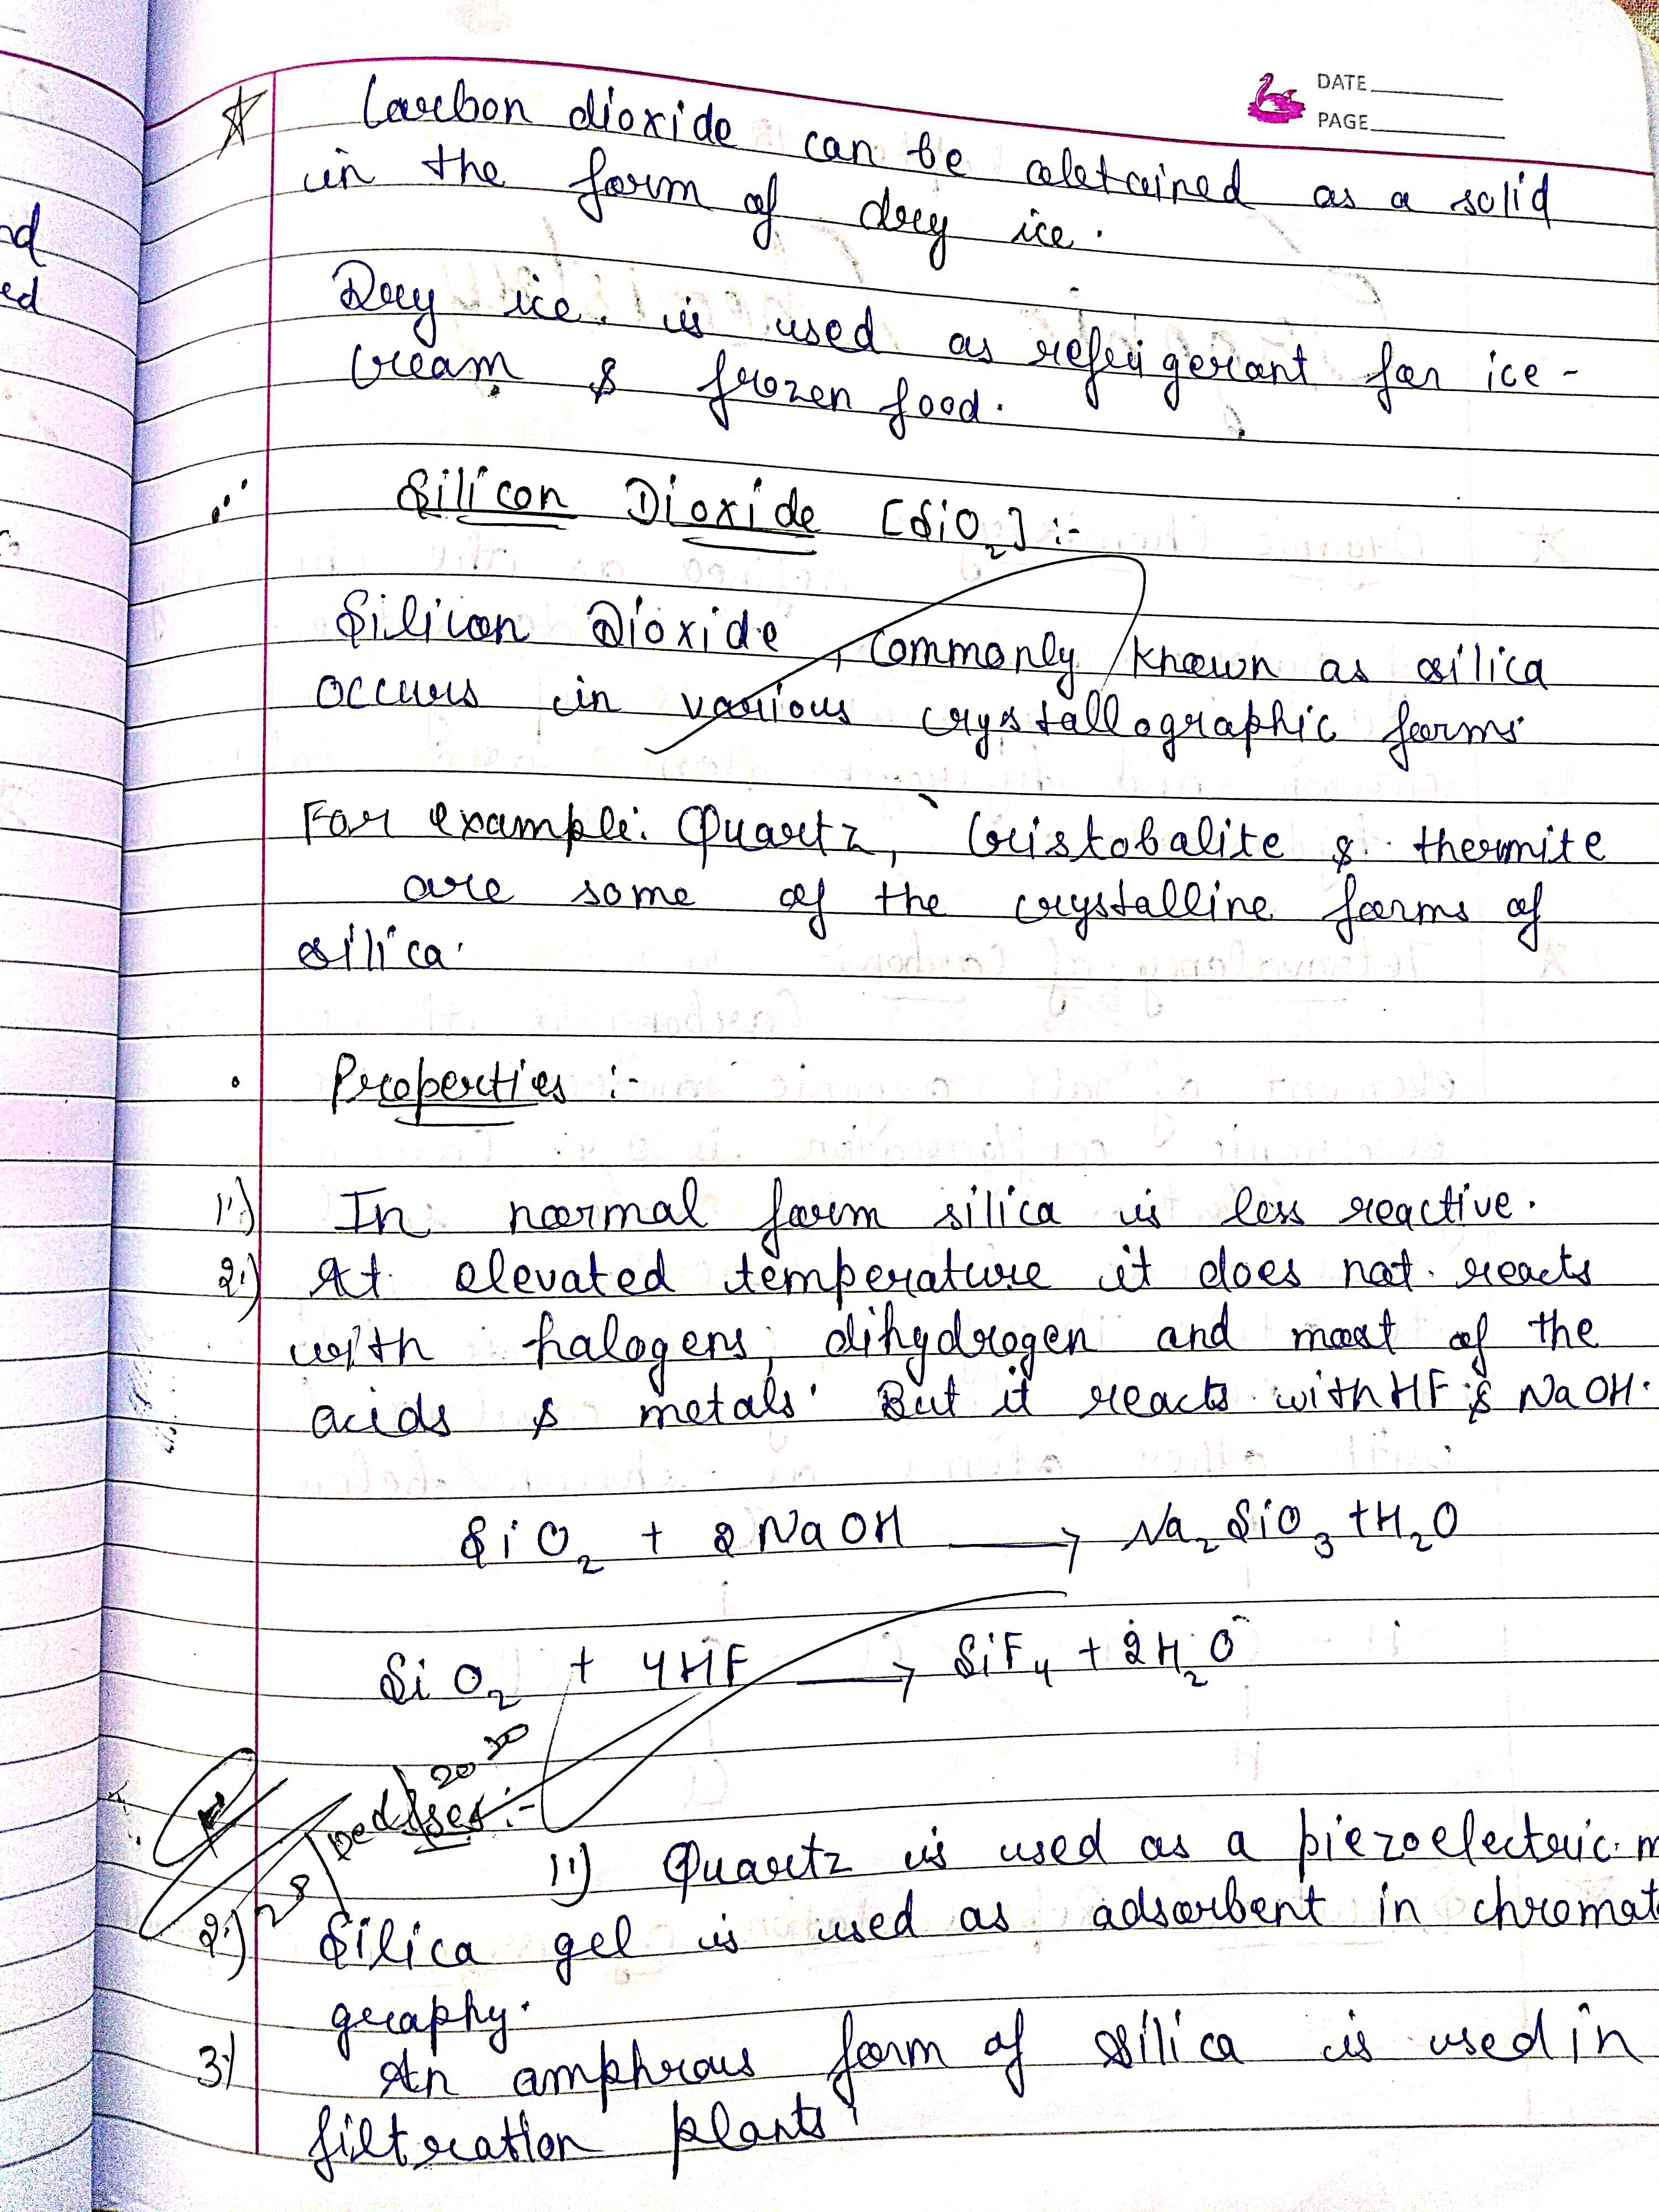 DATE
PAGE
Carbon dioxide can be obtained as a solid
in the form of dry ice.
Dry ice is used as refrigerant for ice-
cream & frozen food.
Silicon Dioxide [SiO2] :-
Silicon Dioxide, commonly known as silica
occurs in various crystallographic forms.
For example: Quartz, Cristobalite & thermite
are some of the crystalline forms of
silica.
Properties :-
1.) In normal form silica is less reactive.
2.) At elevated temperature it does not reacts
with halogens, dihydrogen and most of the
acids & metals. But it reacts with HF & NaOH.
SiO2 + 2NaOH → Na2SiO3 + H2O
SiO2 + 4HF → SiF4 + 2H2O
Uses :-
1.) Quartz is used as a piezoelectric m
2.) Silica gel is used as adsorbent in chromat
graphy.
3.) An amphrous form of silica is used in
filtration plants.
nd
ed